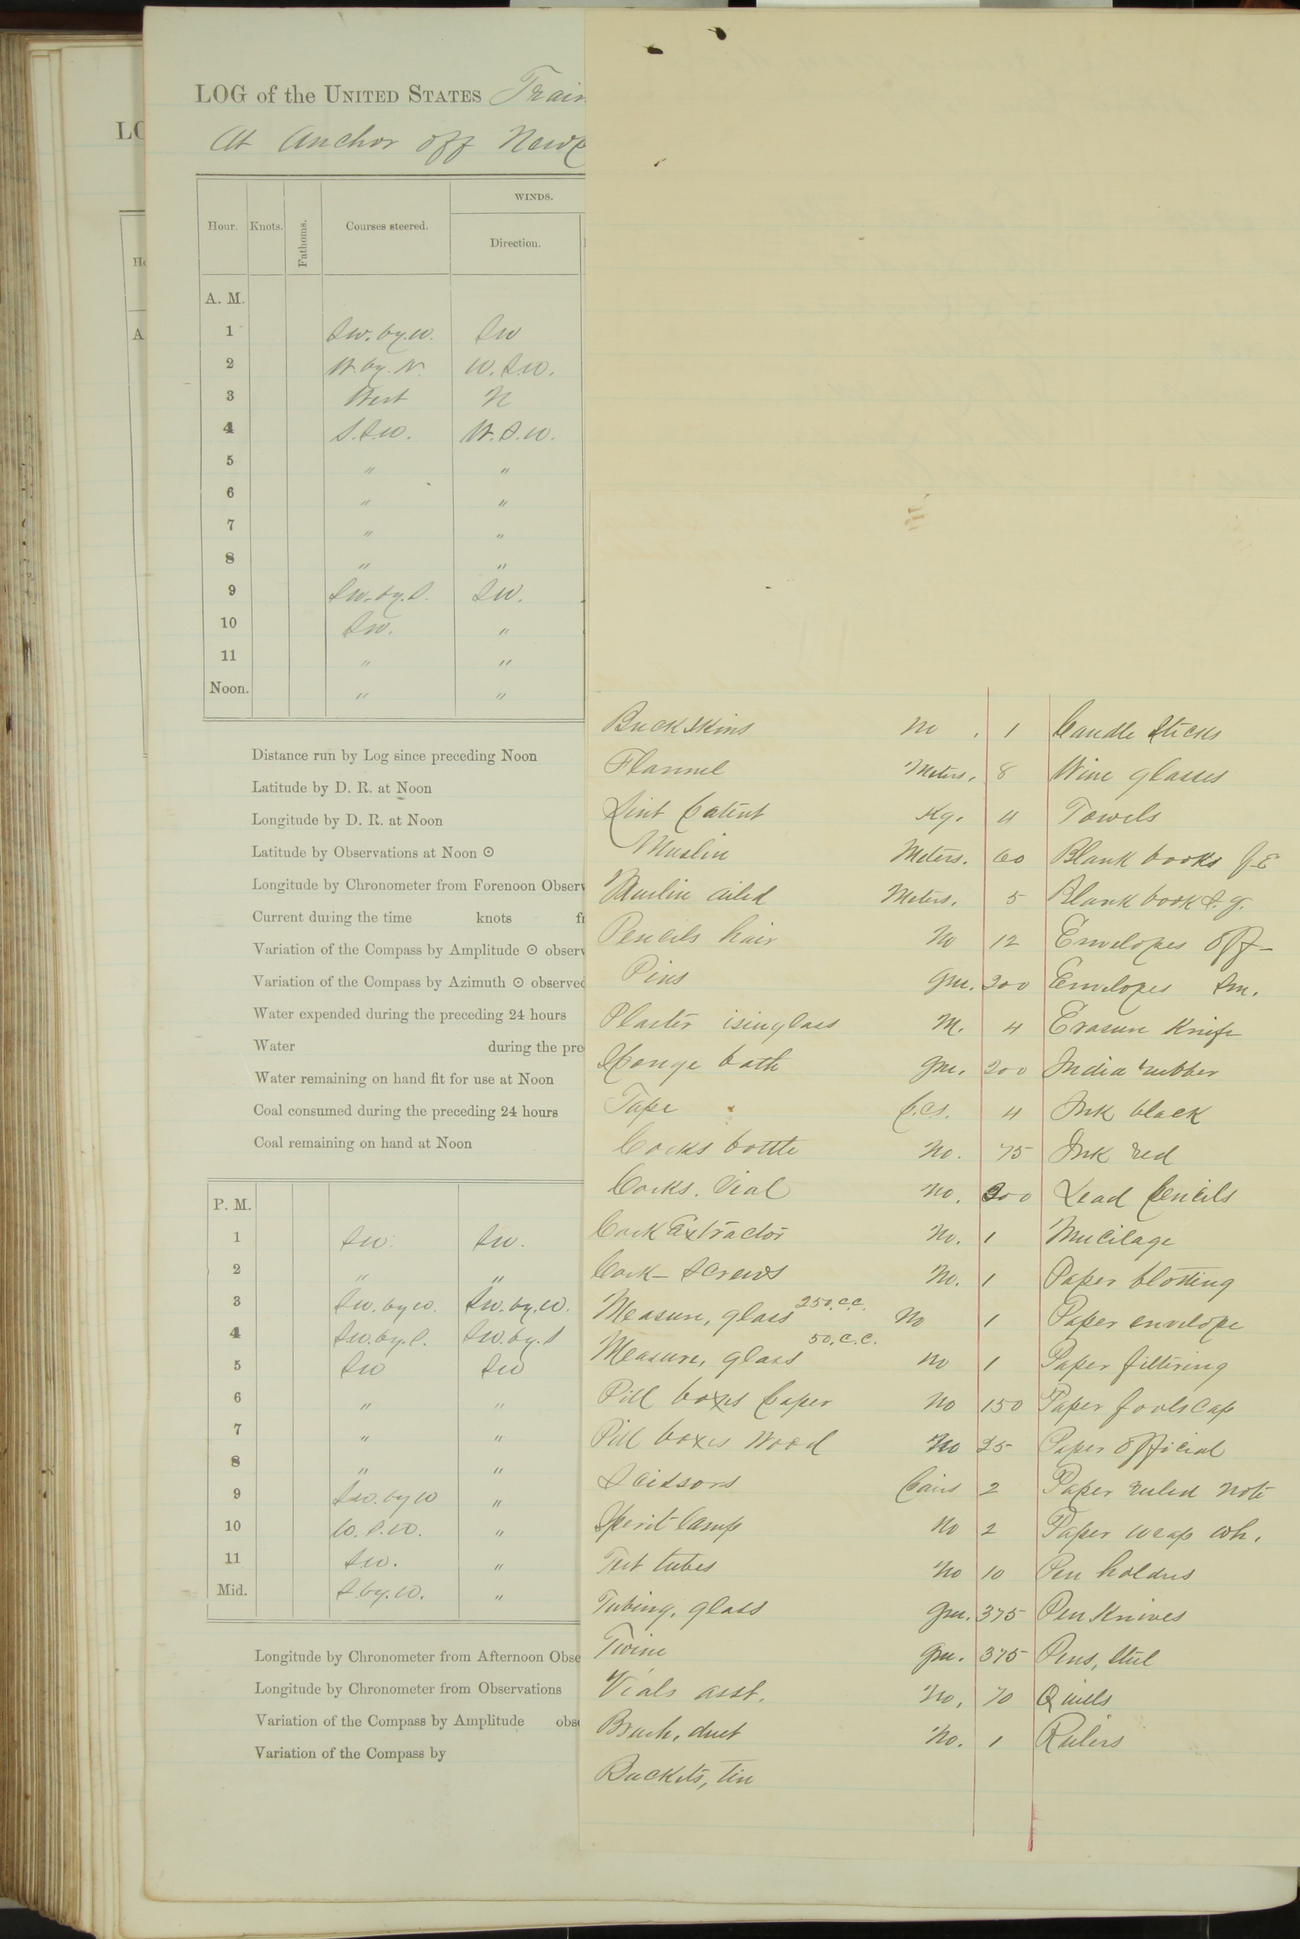 LOG of the UNITED STATES Train
At Anchor off Newp
WINDS.
Hour. Knots. Fathoms. Courses steered. Direction.
A. M.
1 Sw. by. W. Sw
2 W. by. N. W. S.W.
3 West N
4 S.S.W. W. S. W.
5 " "
6 " "
7 " "
8 " "
9 Sw. by. S. Sw.
10 Sw. "
11 " "
Noon. " "
Distance run by Log since preceding Noon
Latitude by D. R. at Noon
Longitude by D. R. at Noon
Latitude by Observations at Noon ☉
Longitude by Chronometer from Forenoon Observ
Current during the time knots f
Variation of the Compass by Amplitude ☉ observ
Variation of the Compass by Azimuth ☉ observed
Water expended during the preceding 24 hours
Water during the pre
Water remaining on hand fit for use at Noon
Coal consumed during the preceding 24 hours
Coal remaining on hand at Noon
P. M.
1 Sw. Sw.
2 " "
3 Sw. by W. Sw. by. W.
4 Sw. by. S. Sw. by. S
5 Sw Sw
6 " "
7 " "
8 " "
9 Sw. by W "
10 W. S. W. "
11 Sw. "
Mid. S. by. W. "
Longitude by Chronometer from Afternoon Obse
Longitude by Chronometer from Observations
Variation of the Compass by Amplitude obse
Variation of the Compass by
Buckskins No . 1 Candle Sticks
Flannel Meters. 8 Wine glasses
Lint Patent Kg. 4 Towels
Muslin Meters. 60 Blank books
Muslin oiled Meters. 5 Blank book
Pencils hair No 12 Envelopes off
Pins Gm. 200 Envelopes Sm.
Plaster isinglass M. 4 Erasure Knife
Sponge bath Gm. 200 India rubber
Tape Pcs. 4 Ink black
Corks bottle No. 75 Ink red
Corks. Vial No. 200 Lead Pencils
Cork Extractor No. 1 Mucilage
Cork-Screws No. 1 Paper blotting
Measure, glass 250. c.c. No 1 Paper envelope
Measure, glass 50. c. c. No 1 Paper filtering
Pill boxes Paper No 150 Paper foolscap
Pill boxes Wood No 25 Paper official
Scissors Pairs 2 Paper ruled note
Spirit lamp No 2 Paper wrap wh.
Test tubes No 10 Pen holders
Tubing, glass Gm. 375 Pen Knives
Twine Gm. 375 Pens, Steel
Vials asst. No. 70 Quills
Brush, dust No. 1 Rulers
Buckets, tin